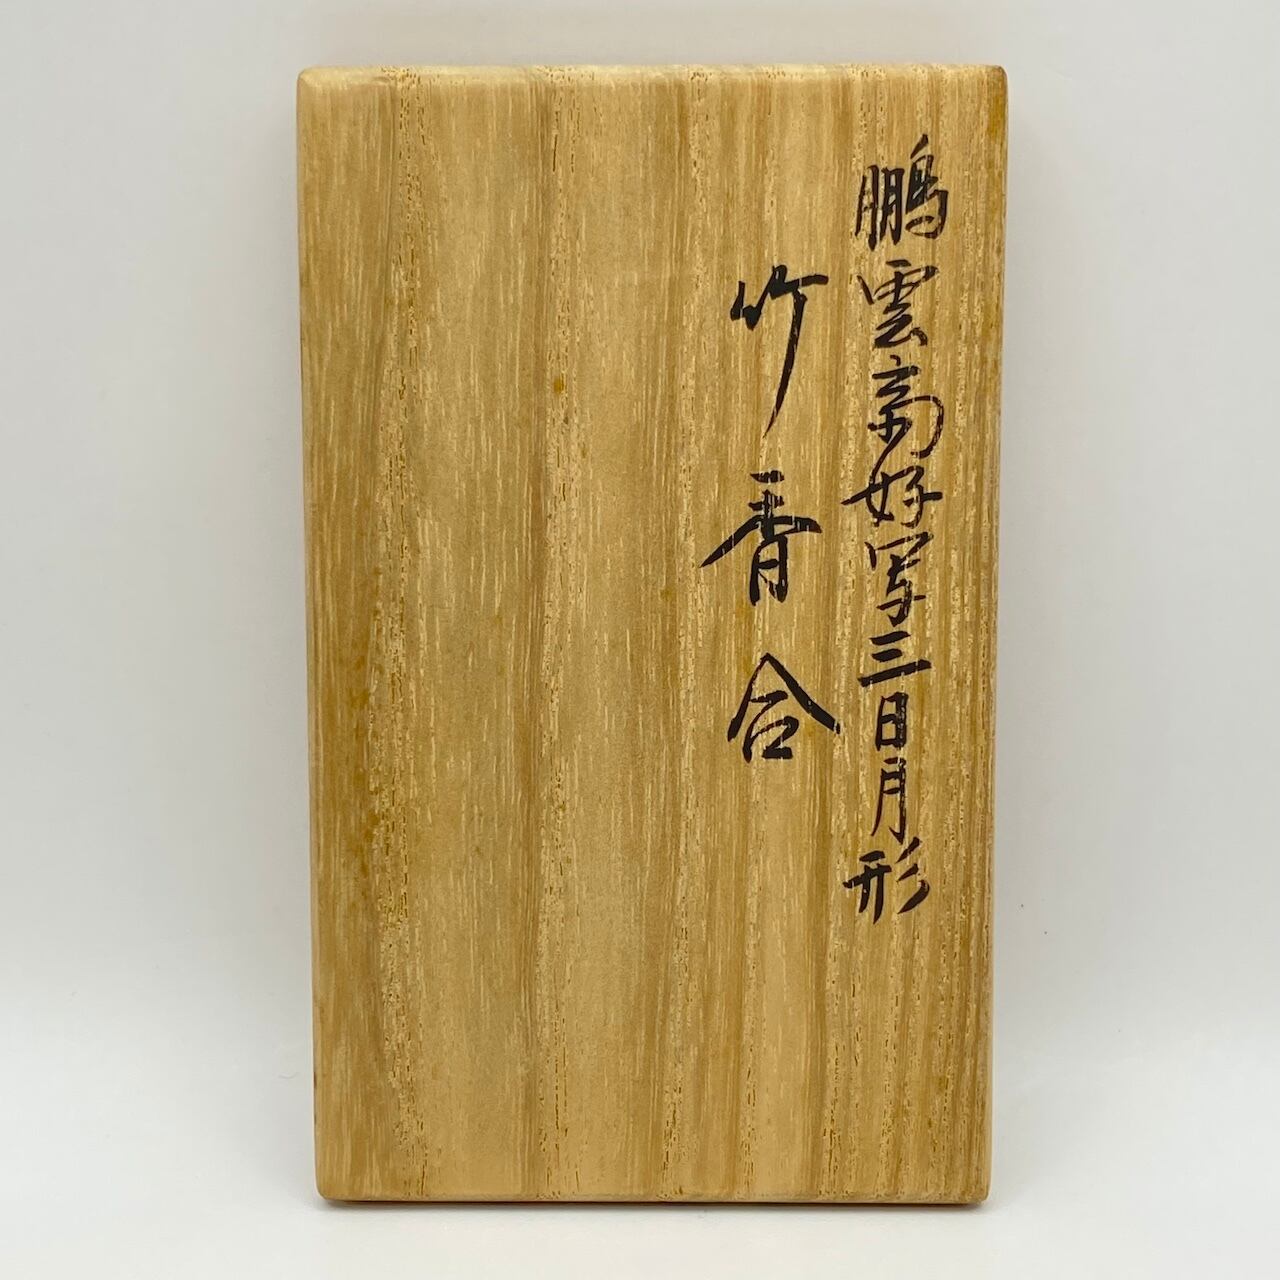 鵬雲斎好写三日月形
竹香合